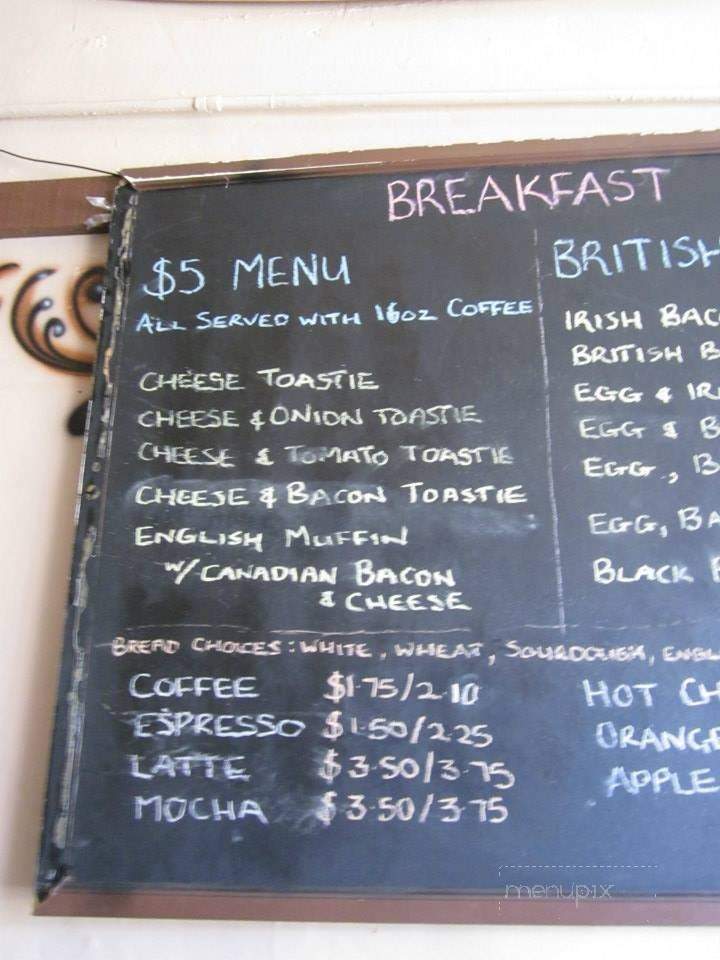 BREAKFAST
$5 MENU
ALL SERVED WITH 16OZ COFFEE
CHEESE TOASTIE
CHEESE & ONION TOASTIE
CHEESE & TOMATO TOASTIE
CHEESE & BACON TOASTIE
ENGLISH MUFFIN
W/ CANADIAN BACON
& CHEESE
BRITISH
IRISH BACO
BRITISH B
EGG & IRI
EGG & B
EGG, B
EGG, BA
BLACK
BREAD CHOICES: WHITE, WHEAT, SOURDOUGH, ENGLI
COFFEE $1.75/2.10
ESPRESSO $1.50/2.25
LATTE $3.50/3.75
MOCHA $3.50/3.75
HOT CH
ORANGE
APPLE
menupix